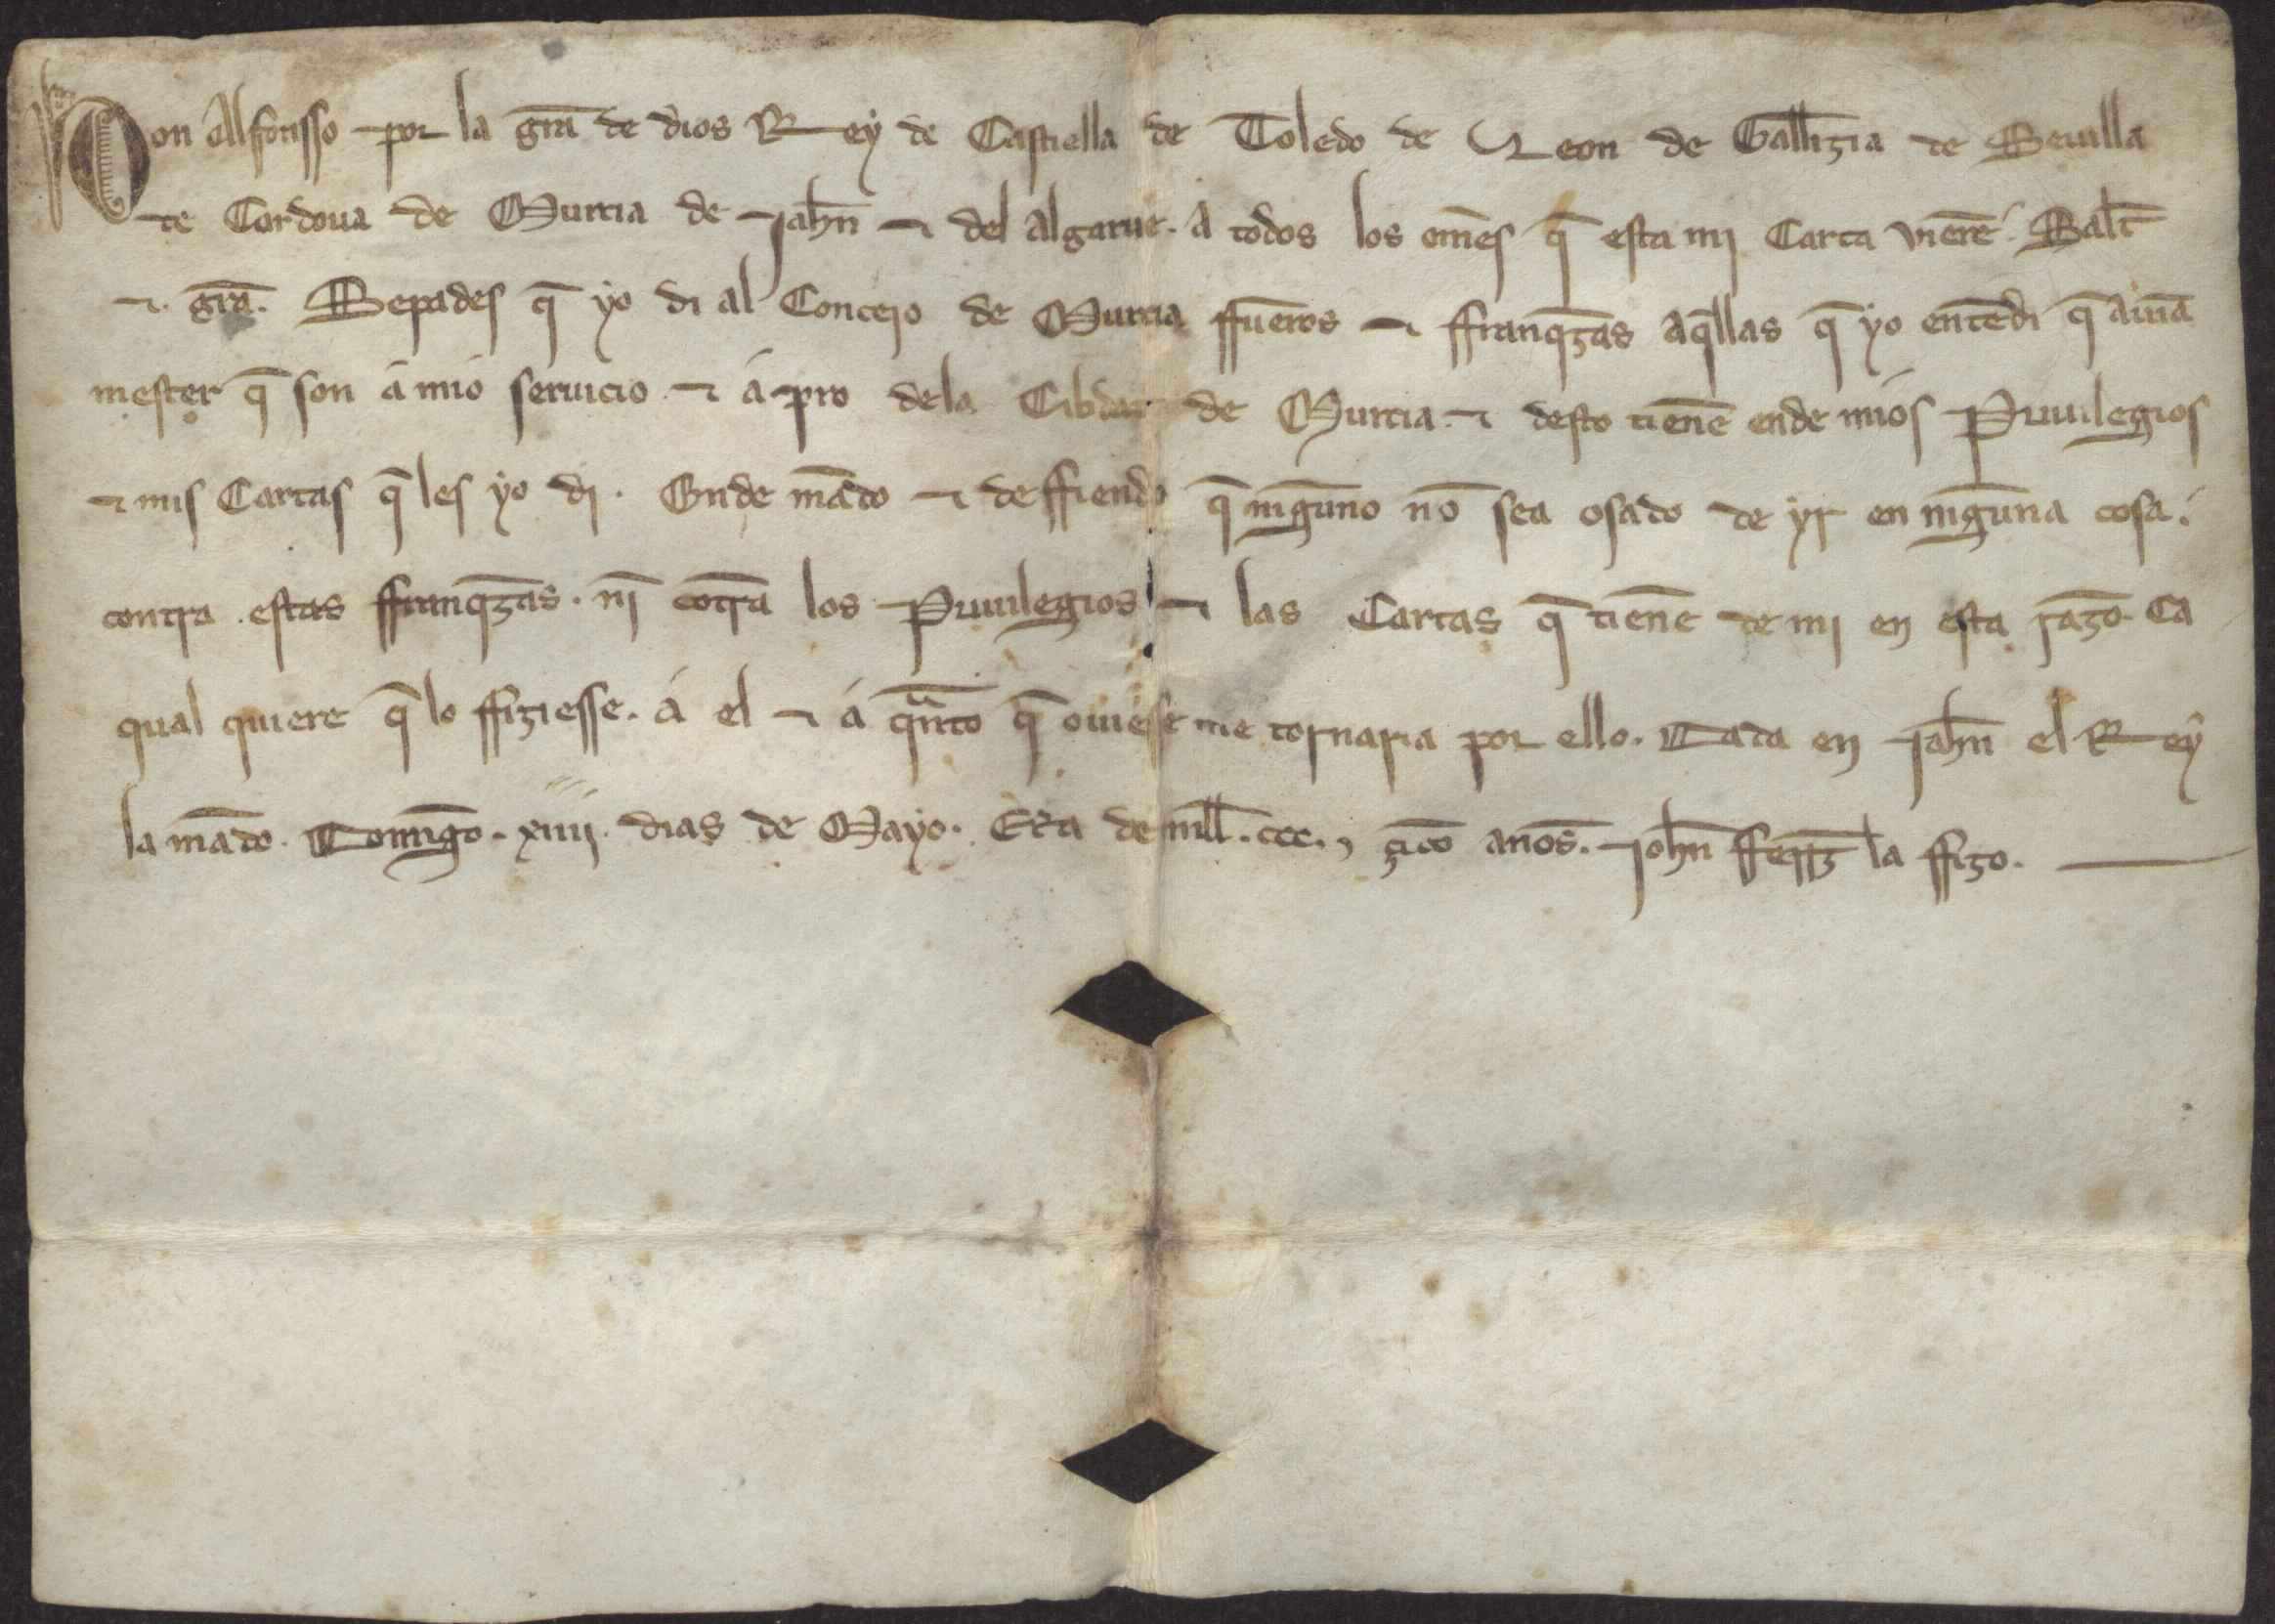 Don Alfonsso por la gr̄a de dios Rey de Castiella de Toledo de Leon de Gallizia de Seuilla
de Cordoua de Murcia de Jahn̄ ⁊ del Algarue. A todos los om̄es q̄ esta mi Carta uierē. Salt̄
⁊ gr̄a. Sepades q̄ yo di al Concejo de Murcia ffueros ⁊ ffranq̄zas aq̄llas q̄ yo entēdi q̄ auiā
mester q̄ son á mio seruicio ⁊ á pro dela Cibdat de Murcia. ⁊ desto tienē ende mios Priuilegios
⁊ mis Cartas q̄ les yo di. Onde mādo ⁊ deffiendo q̄ ninguno nō sea osado de yr en ninguna cosa.
contra estas ffranq̄zas. nī cōtra los Priuilegios ⁊ las Cartas q̄ tienē de mi en esta razō. Ca
qual quiere q̄ lo ffiziesse. á el ⁊ á qᵃnto q̄ ouiesse me tornaria por ello. Dada en Jahn̄ el Rey
la mādo. Domīgo. xiiij. dias de Mayo. Era de mill. ccc. ⁊ çīco anos. John̄ fferrz̄ la ffizo.